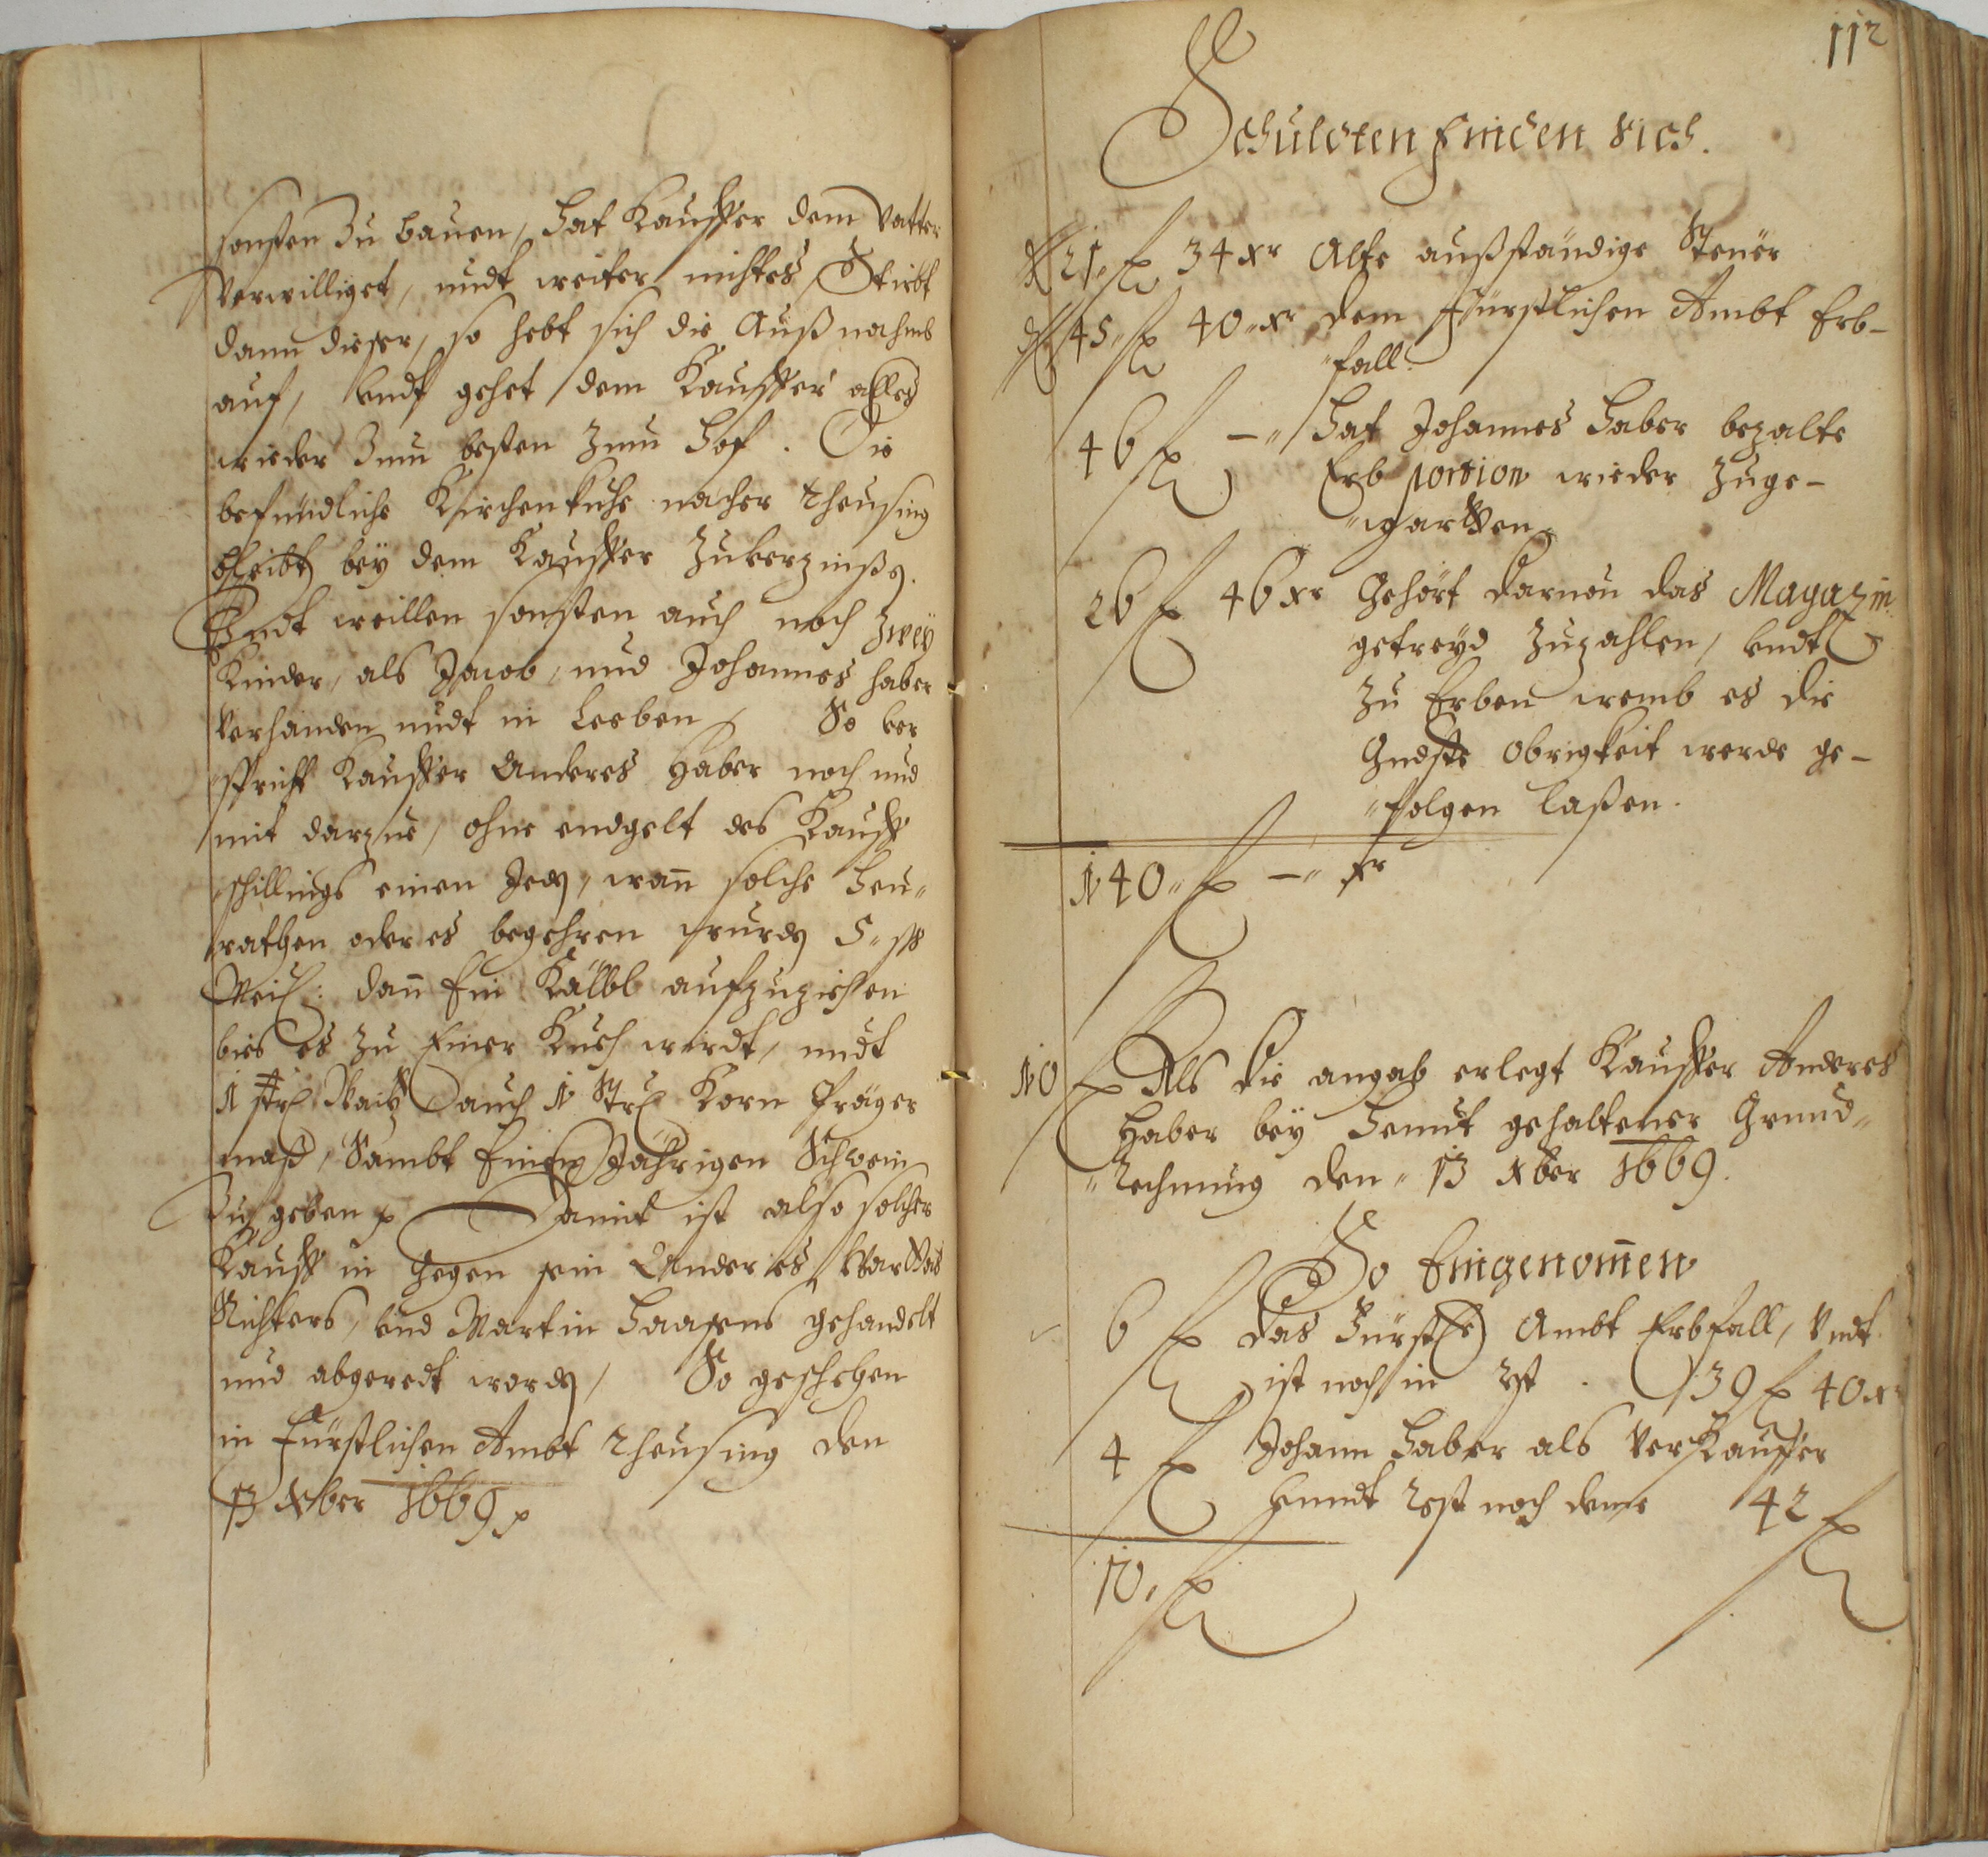 sonsten zu bauen, hat Kauffer dem Vatter
Verwilliget, undt weiter nichtes, Stirbt
dann dieser, so hebt sich die Außnahmb
auf, undt gehet dem Kauffer alles
wieder zum besten zum Hof. Die
befündliche Kirchenkuhe nacher Theusing
bleibt bey dem Kauffer Zuverzinßen.
Undt weillen sonsten auch noch Zwey
Kinder, als Jacob, und Johannes Haber
Verhanden undt in Leeben, So ver
spricht Kauffer Anderes Haber noch und
mit darzue, ohne endgelt des Kauff
schillings einen Jeden, wan̄ solche Heu„
rathen oder es begehren wurden 5„ ßs
Meiß: dan̄ Ein Kälbl aufzuziehen
bies es zu Einer Kueh wirdt, undt
1 Str Waitz auch 1 Str Korn Präger
maß, Sambt Einen Jährigen Schwein
zu geben. Damit ist also solcher
Kauff in gegen sein Anderes
Richters, und Martin Haasens gehandelt
und abgeredt worden, So geschehen
in Fürstlichen Ambt Theusing den
13 Xber 1669
112
Schuldten Finden sich.
21„ f 34 xr Alte außständige Steüer
45„ f 40„ xr dem Fürstlichen Ambt Erb-
„fall.
46 f –„ Hat Johannes Haber bezalte
Erb portion wieder zuge-
„wartten
26 f 46 xr Gehört darvon das Magazin
getreyd Zuzahlen, undt
zu Erben wemb es die
Gndste Obrigkeit werde ge-
„folgen laßen.
140„ f –„ xr
10 f Als die angab erlegt Kauffer Anderes
Haber bey heunt gehaltener Grund„
„Rechnung den„ 13 Xber 1669.
So Eingenom̄en
6 f das Fürstl Ambt Erbfall, Undt
ist noch in Rst. 39 f 40 xr
4 f Johann Haber als Verkauffer
Unndt Rest noch deme 42 f
10„ f